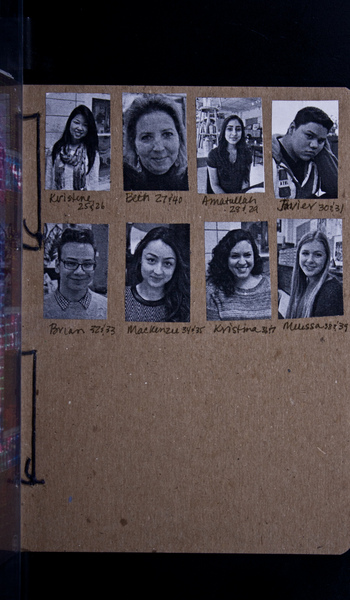 Kristine
25 & 26
Beth 27 & 40
Amatullah
- 28 & 29
Javier 30 & 31
Brian 32 & 33
Mackenzie 34 & 35
Kristina
Melissa